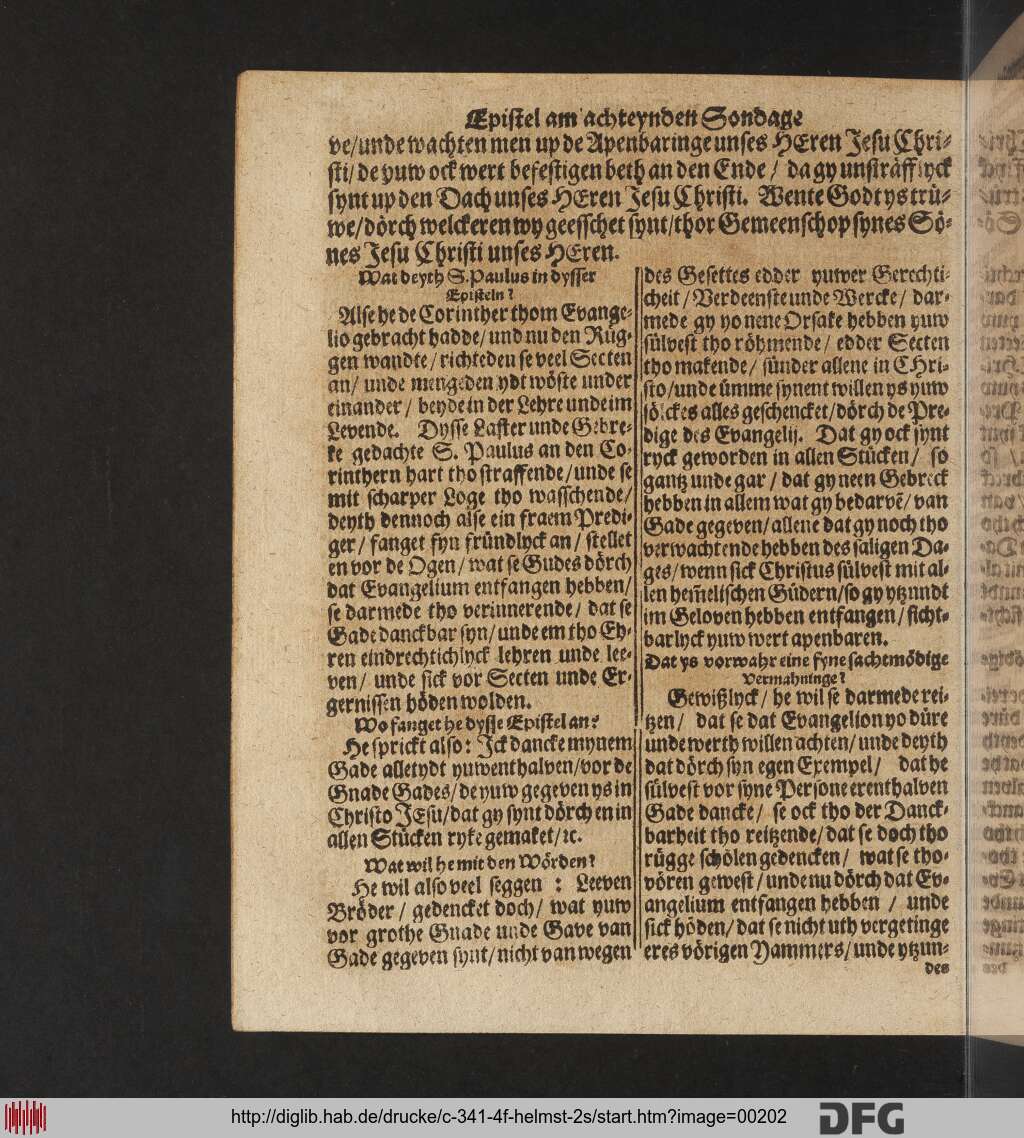 Epistel am achteynden Sondage
ve/unde wachten men up de Apenbaringe unses HEren Jesu Chri-
sti/de yuw ock wert befestigen beth an den Ende / da gy unsträfflyck
synt up den Dach unses HEren Jesu Christi. Wente Godt ys trü-
we/dörch welckeren wy geesschet synt/thor Gemeenschop synes Sö-
nes Jesu Christi unses HEren.
Wat deyth S. Paulus in dysser
Episteln?
Alse he de Corinther thom Evange-
lio gebracht hadde/und nu den Rüg-
gen wandte/richteden se veel Secten
an/ unde mengeden ydt wöste under
einander / beyde in der Lehre unde im
Levende. Dysse Laster unde Gebre-
ke gedachte S. Paulus an den Co-
rinthern hart tho straffende/unde se
mit scharper Loge tho wasschende/
deyth dennoch alse ein fraem Predi-
ger/ fanget fyn fründlyck an/ stellet
en vor de Ogen/wat se Gudes dörch
dat Evangelium entfangen hebben/
se darmede tho verinnerende/ dat se
Gade danckbar syn/unde em tho Eh-
ren eindrechtichlyck lehren unde lee-
ven/ unde sick vor Secten unde Er-
gernissen höden wolden.
Wo fanget he dysse Epistel an?
He sprickt also: Ick dancke mynem
Gade alletydt yuwenthalven/vor de
Gnade Gades/de yuw gegeven ys in
Christo JEsu/dat gy synt dörch en in
allen Stücken ryke gemaket/ꝛc.
Wat wil he mit den Wörden?
He wil also veel seggen : Leeven
Bröder / gedencket doch/ wat yuw
vor grothe Gnade unde Gave van
Gade gegeven synt/nicht van wegen
des Gesettes edder yuwer Gerechti-
cheit/Verdeenste unde Wercke/ dar-
mede gy yo nene Orsake hebben yuw
sülvest tho röhmende/ edder Secten
tho makende/ sünder allene in CHri-
sto/unde ümme synent willen ys yuw
sölckes alles geschencket/dörch de Pre-
dige des Evangelij. Dat gy ock synt
ryck geworden in allen Stücken/ so
gantz unde gar / dat gy neen Gebreck
hebben in allem wat gy bedarvẽ/van
Gade gegeven/allene dat gy noch tho
verwachtende hebben des saligen Da-
ges/wenn sick Christus sülvest mit al-
len hem̃elischen Güdern/so gy ytzundt
im Geloven hebben entfangen/ sicht-
barlyck yuw wert apenbaren.
Dat ys vorwahr eine fyne sachtmödige
Vermahninge?
Gewißlyck/ he wil se darmede rei-
tzen/ dat se dat Evangelion yo düre
unde werth willen achten/unde deyth
dat dörch syn egen Exempel/ dat he
sülvest vor syne Persone erenthalven
Gade dancke/ se ock tho der Danck-
barheit tho reitzende/dat se doch tho
rügge schölen gedencken/ wat se tho-
vören gewest/unde nu dörch dat Ev-
angelium entfangen hebben / unde
sick höden/dat se nicht uth vergetinge
eres vörigen Yammers/unde ytzun-
des
http://diglib.hab.de/drucke/c-341-4f-helmst-2s/start.htm?image=00202
DFG